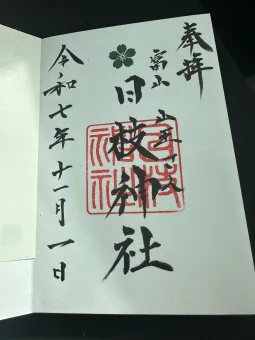 奉拝
富山
日枝神社
日枝神社
令和七年十一月一日